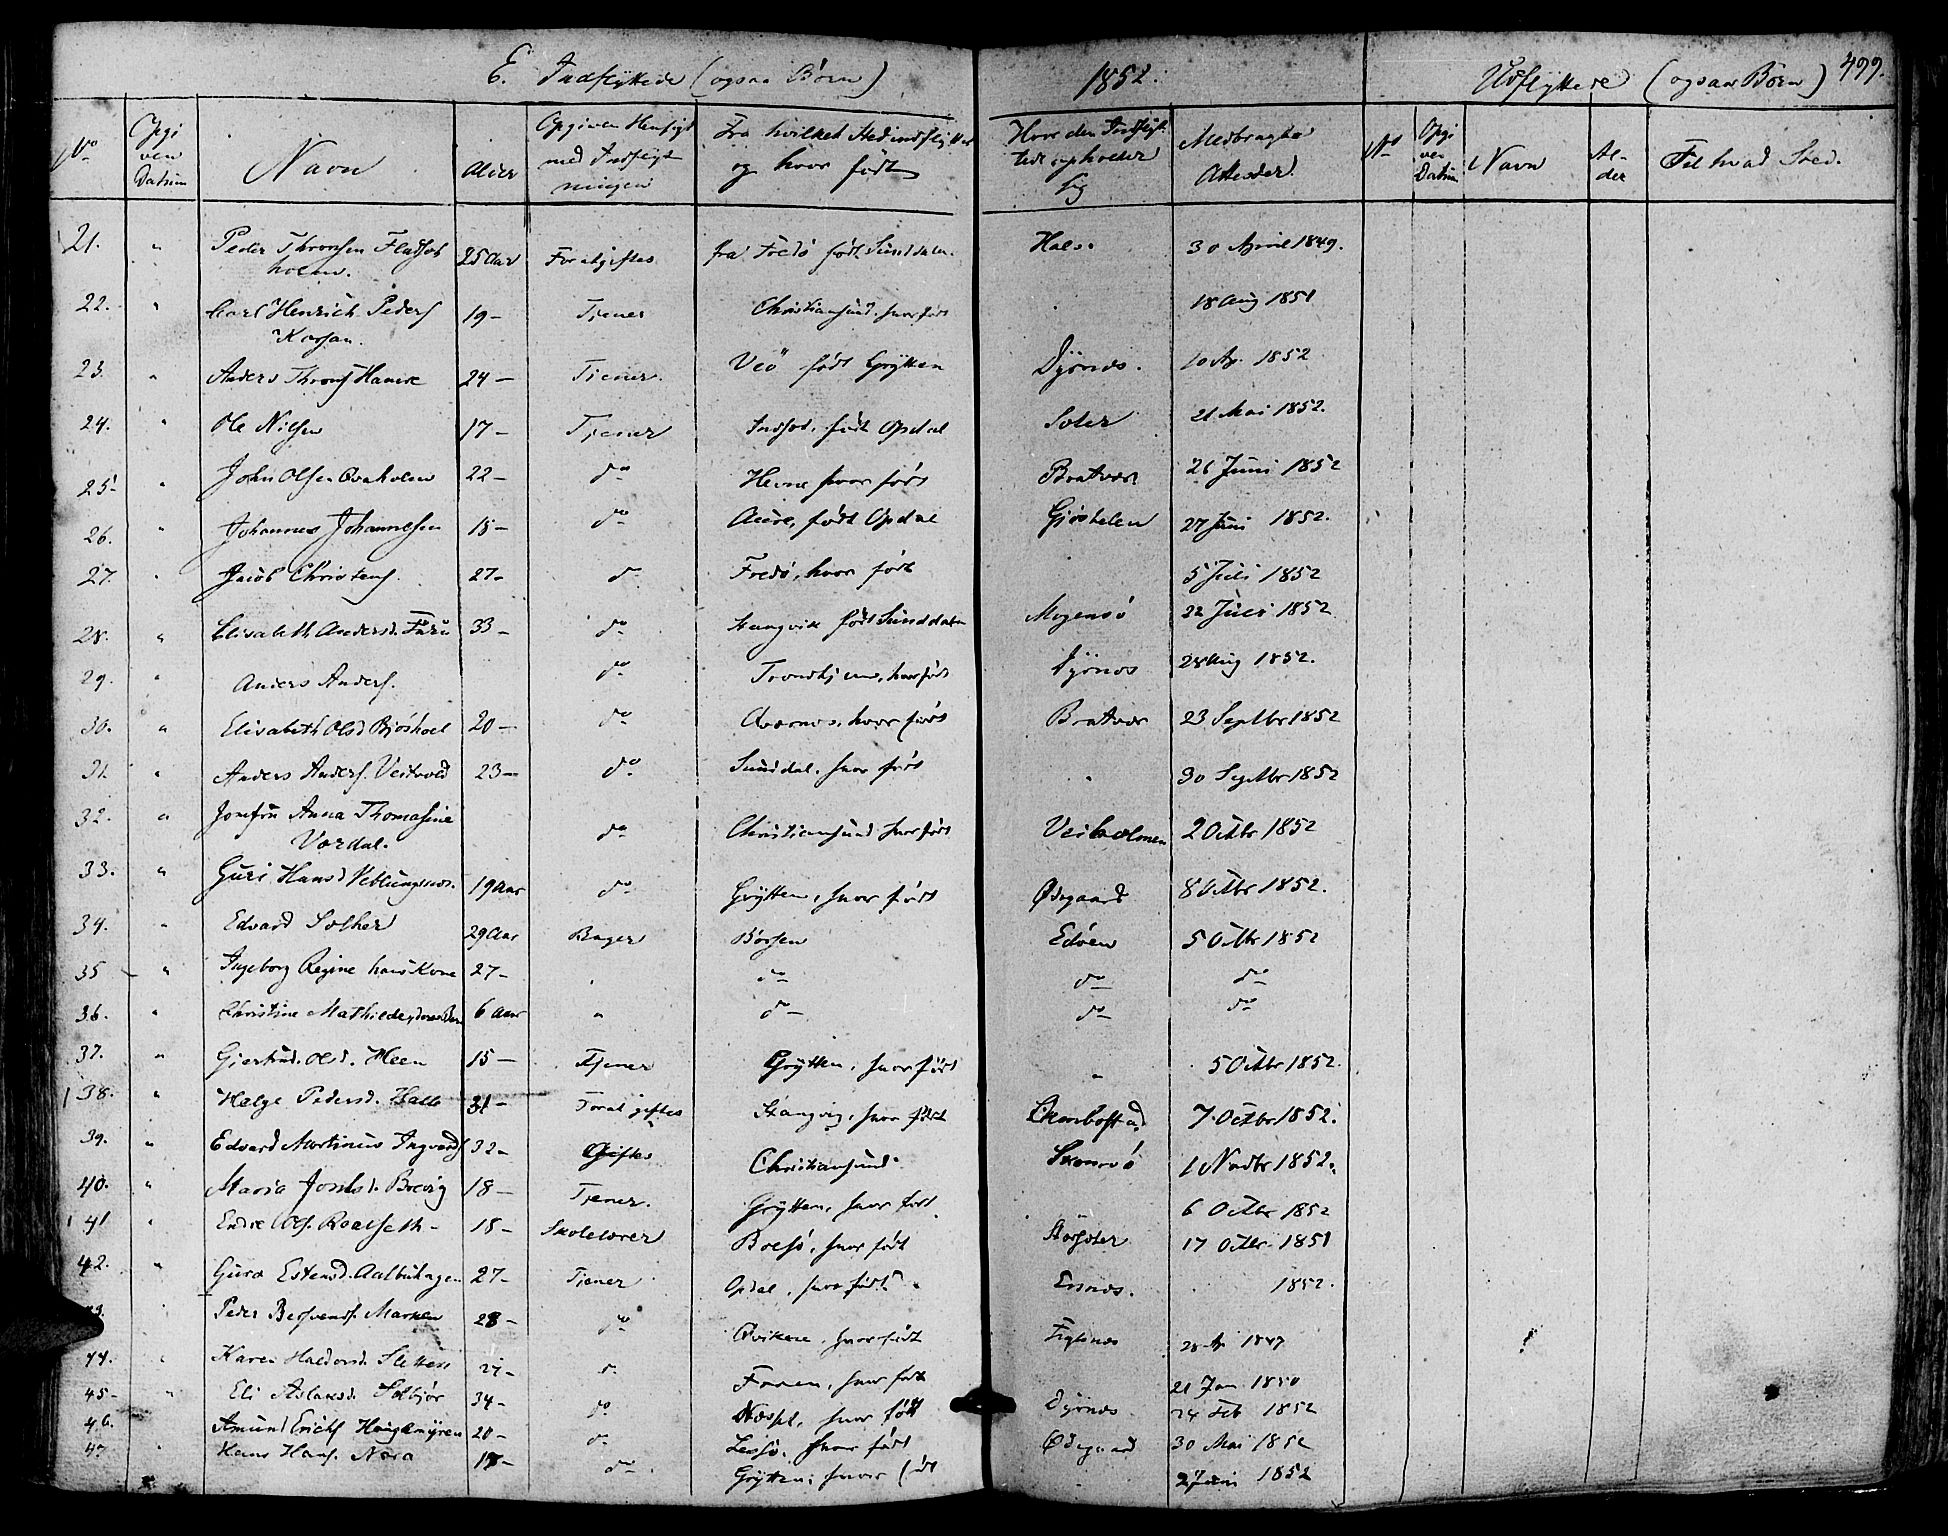 E. Indflyttede (ogsaa Børn) 1852. Udflyttede (ogsaa Børn) 499.
No Opgiven Datum Navn Alder Opgiven Hensigt med Indflytningen Fra hvilket Sted indflyttet og hvor født Hvor den Indflyttede opholder sig Medbragte Attester. No Opgiven Datum Navn Alder Til hvad Sted.
21. " Peder Thronsen Fladsetholm. 25 Aar For at giftes fra Fredø født Sunddalen. Hals. 30 April 1849.
22. " Carl Henrich Peders 19 - Tjener Christiansund. hvor født 18 Aug 1851
23. " Anders Throns Hamre 24 - Tjener. Veø født Grytten Dyrnes. 10 Ap. 1852
24. " Ole Nilsen 17 - Tjener Indset, født Opdal Soter 21 Mai 1852.
25 " John Olsen 22 - do Hevne hvor født Bratvær 26 Juni 1852
26. " Johannes Johannesen 18 - do Aure, født Opdal 27 Juni 1852.
27. " Jacob Christens. 27 - do Fredø, hvor født 5 Juli 1852
28. " Elisabeth Andersd. Furu 33 - do Stangvik født Sunddalen Mogensø 22 Juli 1852
29. " Anders Anders. do Trondhjem, hvor født Dyrnes 28 Aug 1852.
30. " Elisabeth Olsd 20 - do Averøes, hvor født Bratvær 23 Septbr 1852
31 " Anders Anders. Veitvold 23 - do Sunddal. hvor født " 30 Septbr 1852
32. " Jomfru Anna Thomasine Vordal. do Christiansund hvor født Veiholmen 2 Octbr 1852
33. " Guri Hansd Veblungsnes. 19 Aar do Grytten, hvor født Ødegaard 8 Octbr 1852.
34. " Edvard Solher 29 Aar Bager Børsen Edøen 5 Octbr 1852
35 - " Ingeborg Regine hans Kone 27 - " do do do
36. " Christine Mathilde, deres Barn 6 Aar " do do do
37. " Gjertrud. Olsd. Heen 15 - Tjener Grytten, hvor født " 5 Octbr 1852.
38. " Helge Pedersd. Halle 31 - For at giftes Stangvig, hvor født 7. Octbr 1852.
39. " Edvard Martinus Ingvards 32 - Giftes Christiansund. 1 Novbr 1852.
40. " Maria Jonsd. Brevig 18 - Tjener. Grytten, hvor født. 6 Octbr 1852
41 " Endre Ols. Roaldseth - 18 - Skolelærer Bolsø, hvor født 17 Octbr. 1851
42. " Guro Estensd. Aalbuhagen 27 - Tjener Opdal, hvor født. Ernnes. 1852.
43. " Peder Bersvends. Marken 28 - do Qvikne, hvor født 28 Ap 1847
44. " Karen Haldorsd. Sletten 21 - do Fosen, hvor født 21 Jan 1850
45 - " Eli Aslaksd. Solbjør 34 - do Næsset, hvor født Dyrnes 24 Feb 1852
46. Amund Erichs Haugmyren 20 - do Lessø. hvor født Ødegaard 30 Mai 1852
47 " Hans Hans. Nora 18 - do Grytten, hvor født 2 Juni 1852